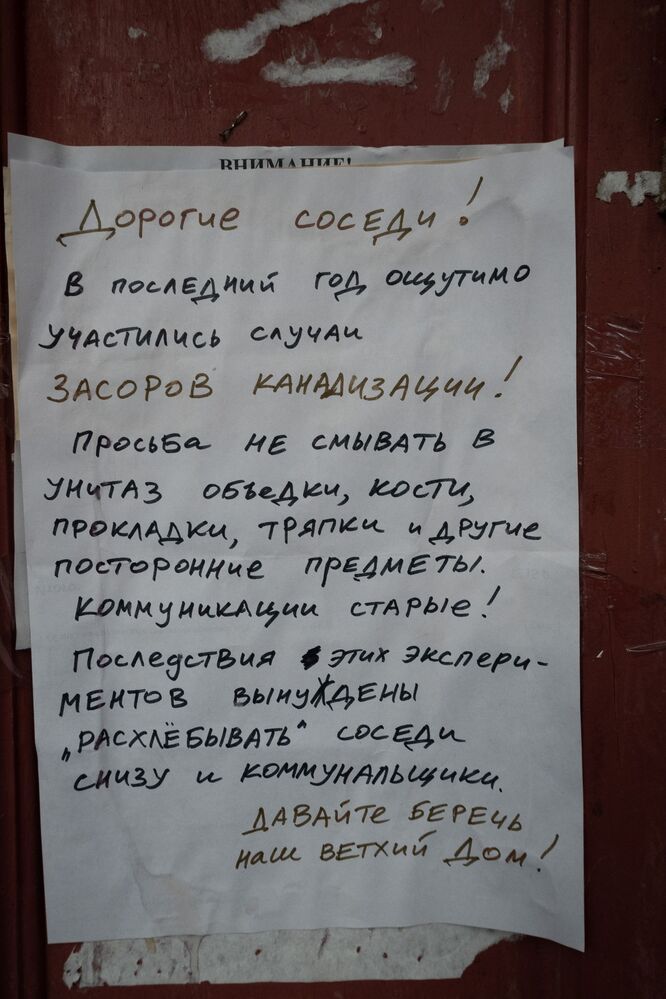 ВНИМАНИЕ!
Дорогие соседи!
В последний год ощутимо
участились случаи
ЗАСОРОВ КАНАЛИЗАЦИИ!
Просьба не смывать в
унитаз объедки, кости,
прокладки, тряпки и другие
посторонние предметы.
Коммуникации старые!
Последствия этих экспери-
ментов вынуждены
„расхлёбывать“ соседи
снизу и коммунальщики.
Давайте беречь
наш ветхий дом!